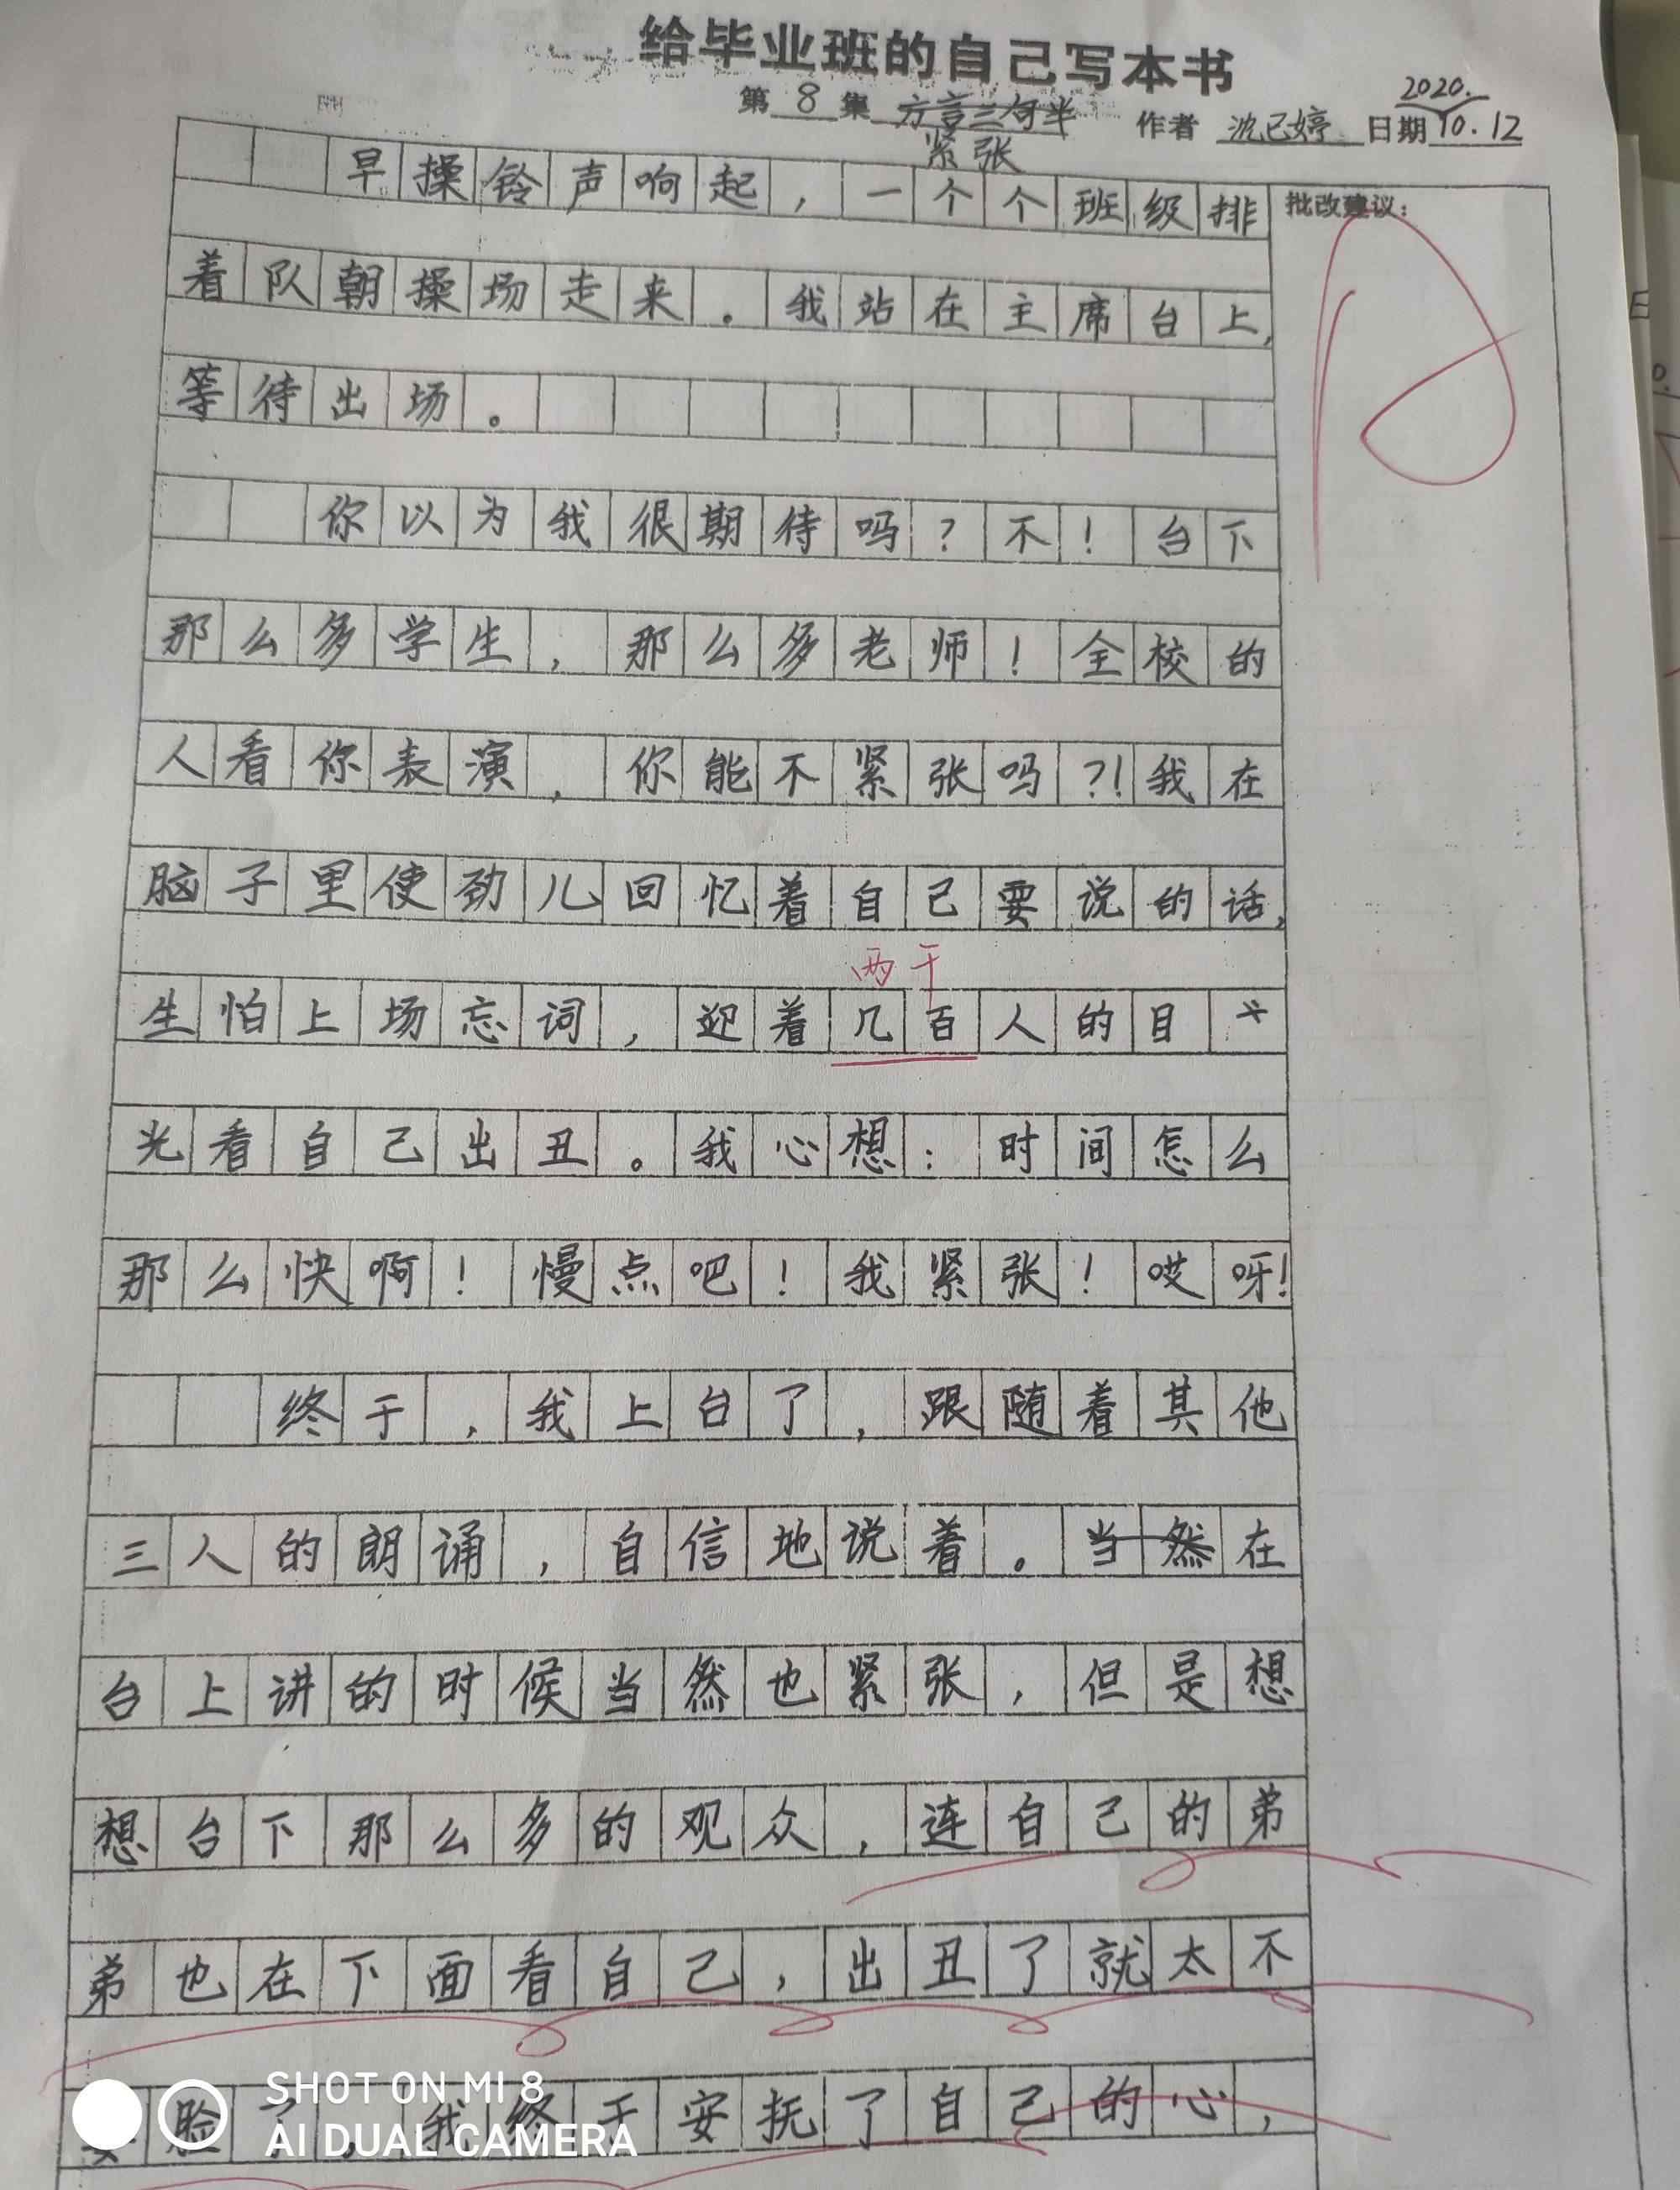 给毕业班的自己写本书
第8集 方言三句半 作者 沈已婷 日期 2020.10.12
紧张
批改建议：
早操铃声响起，一个个班级排
着队朝操场走来。我站在主席台上，
等待出场。
你以为我很期待吗？不！台下
那么多学生，那么多老师！全校的
人看你表演，你能不紧张吗？！我在
脑子里使劲儿回忆着自己要说的话，
两千
生怕上场忘词，迎着几百人的目
光看自己出丑。我心想：时间怎么
那么快啊！慢点吧！我紧张！哎呀！
终于，我上台了，跟随着其他
三人的朗诵，自信地说着。当然在
台上讲的时候当然也紧张，但是想
想台下那么多的观众，连自己的弟
弟也在下面看自己，出丑了就太不
脸了，我终于安抚了自己的心，
SHOT ON MI 8
AI DUAL CAMERA